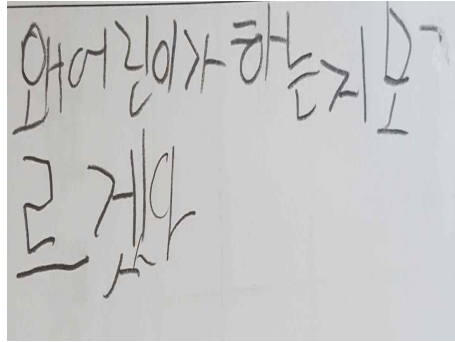 왜어린이가 하는지모
르겠다